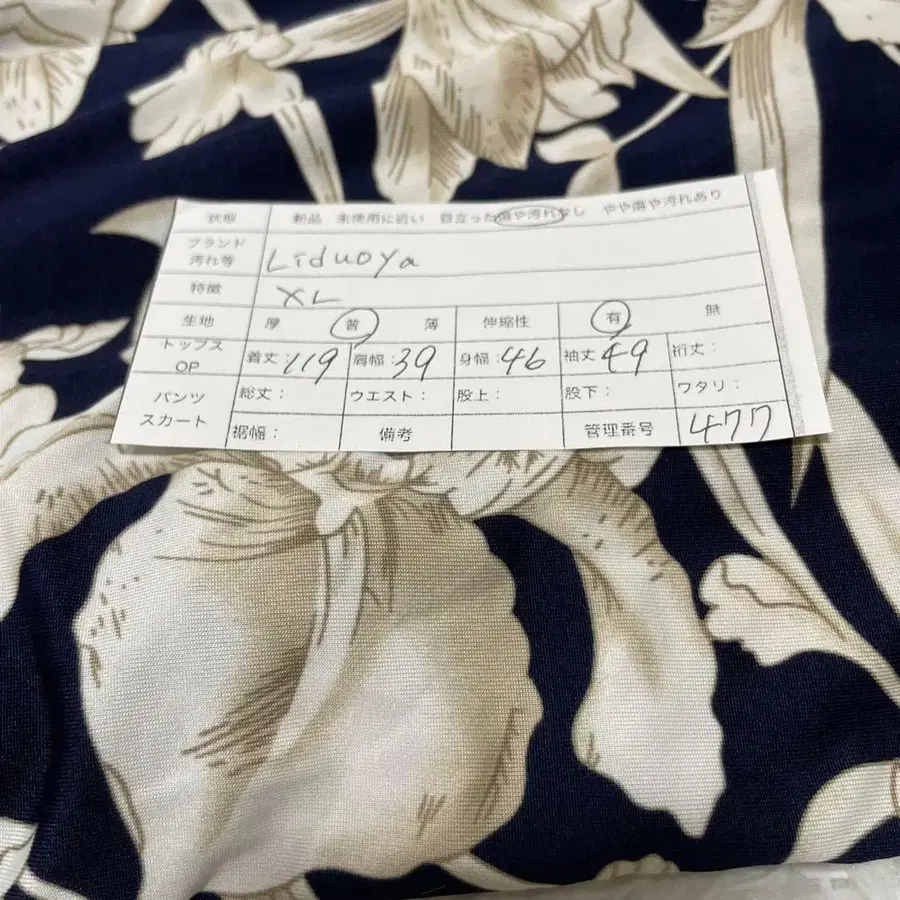 状態 新品 未使用に近い 目立った傷や汚れなし やや傷や汚れあり
ブランド
汚れ等 Liduoya
特徴 XL
生地 厚 普 薄 伸縮性 有 無
トップス
OP 着丈：119 肩幅：39 身幅：46 袖丈：49 裄丈：
パンツ
スカート 総丈： ウエスト： 股上： 股下： ワタリ：
裾幅： 備考 管理番号 477